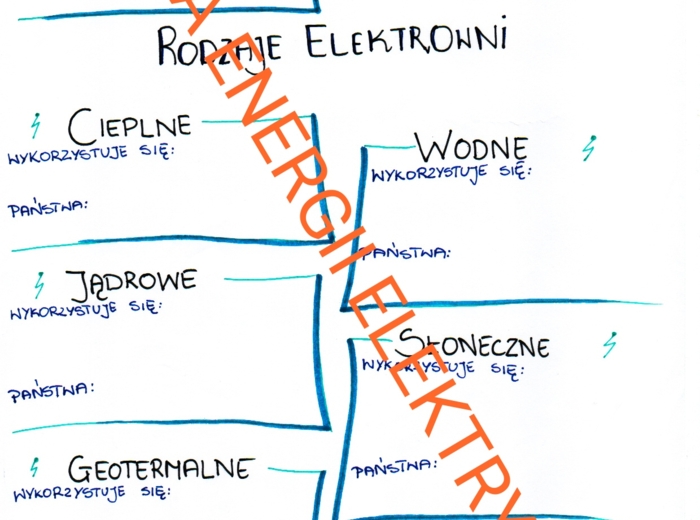 RODZAJE ELEKTROWNI
CIEPLNE
WYKORZYSTUJE SIĘ:
PAŃSTWA:
WODNE
WYKORZYSTUJE SIĘ:
PAŃSTWA:
JĄDROWE
WYKORZYSTUJE SIĘ:
PAŃSTWA:
SŁONECZNE
WYKORZYSTUJE SIĘ:
PAŃSTWA:
GEOTERMALNE
WYKORZYSTUJE SIĘ:
A ENERGII ELEKTRY